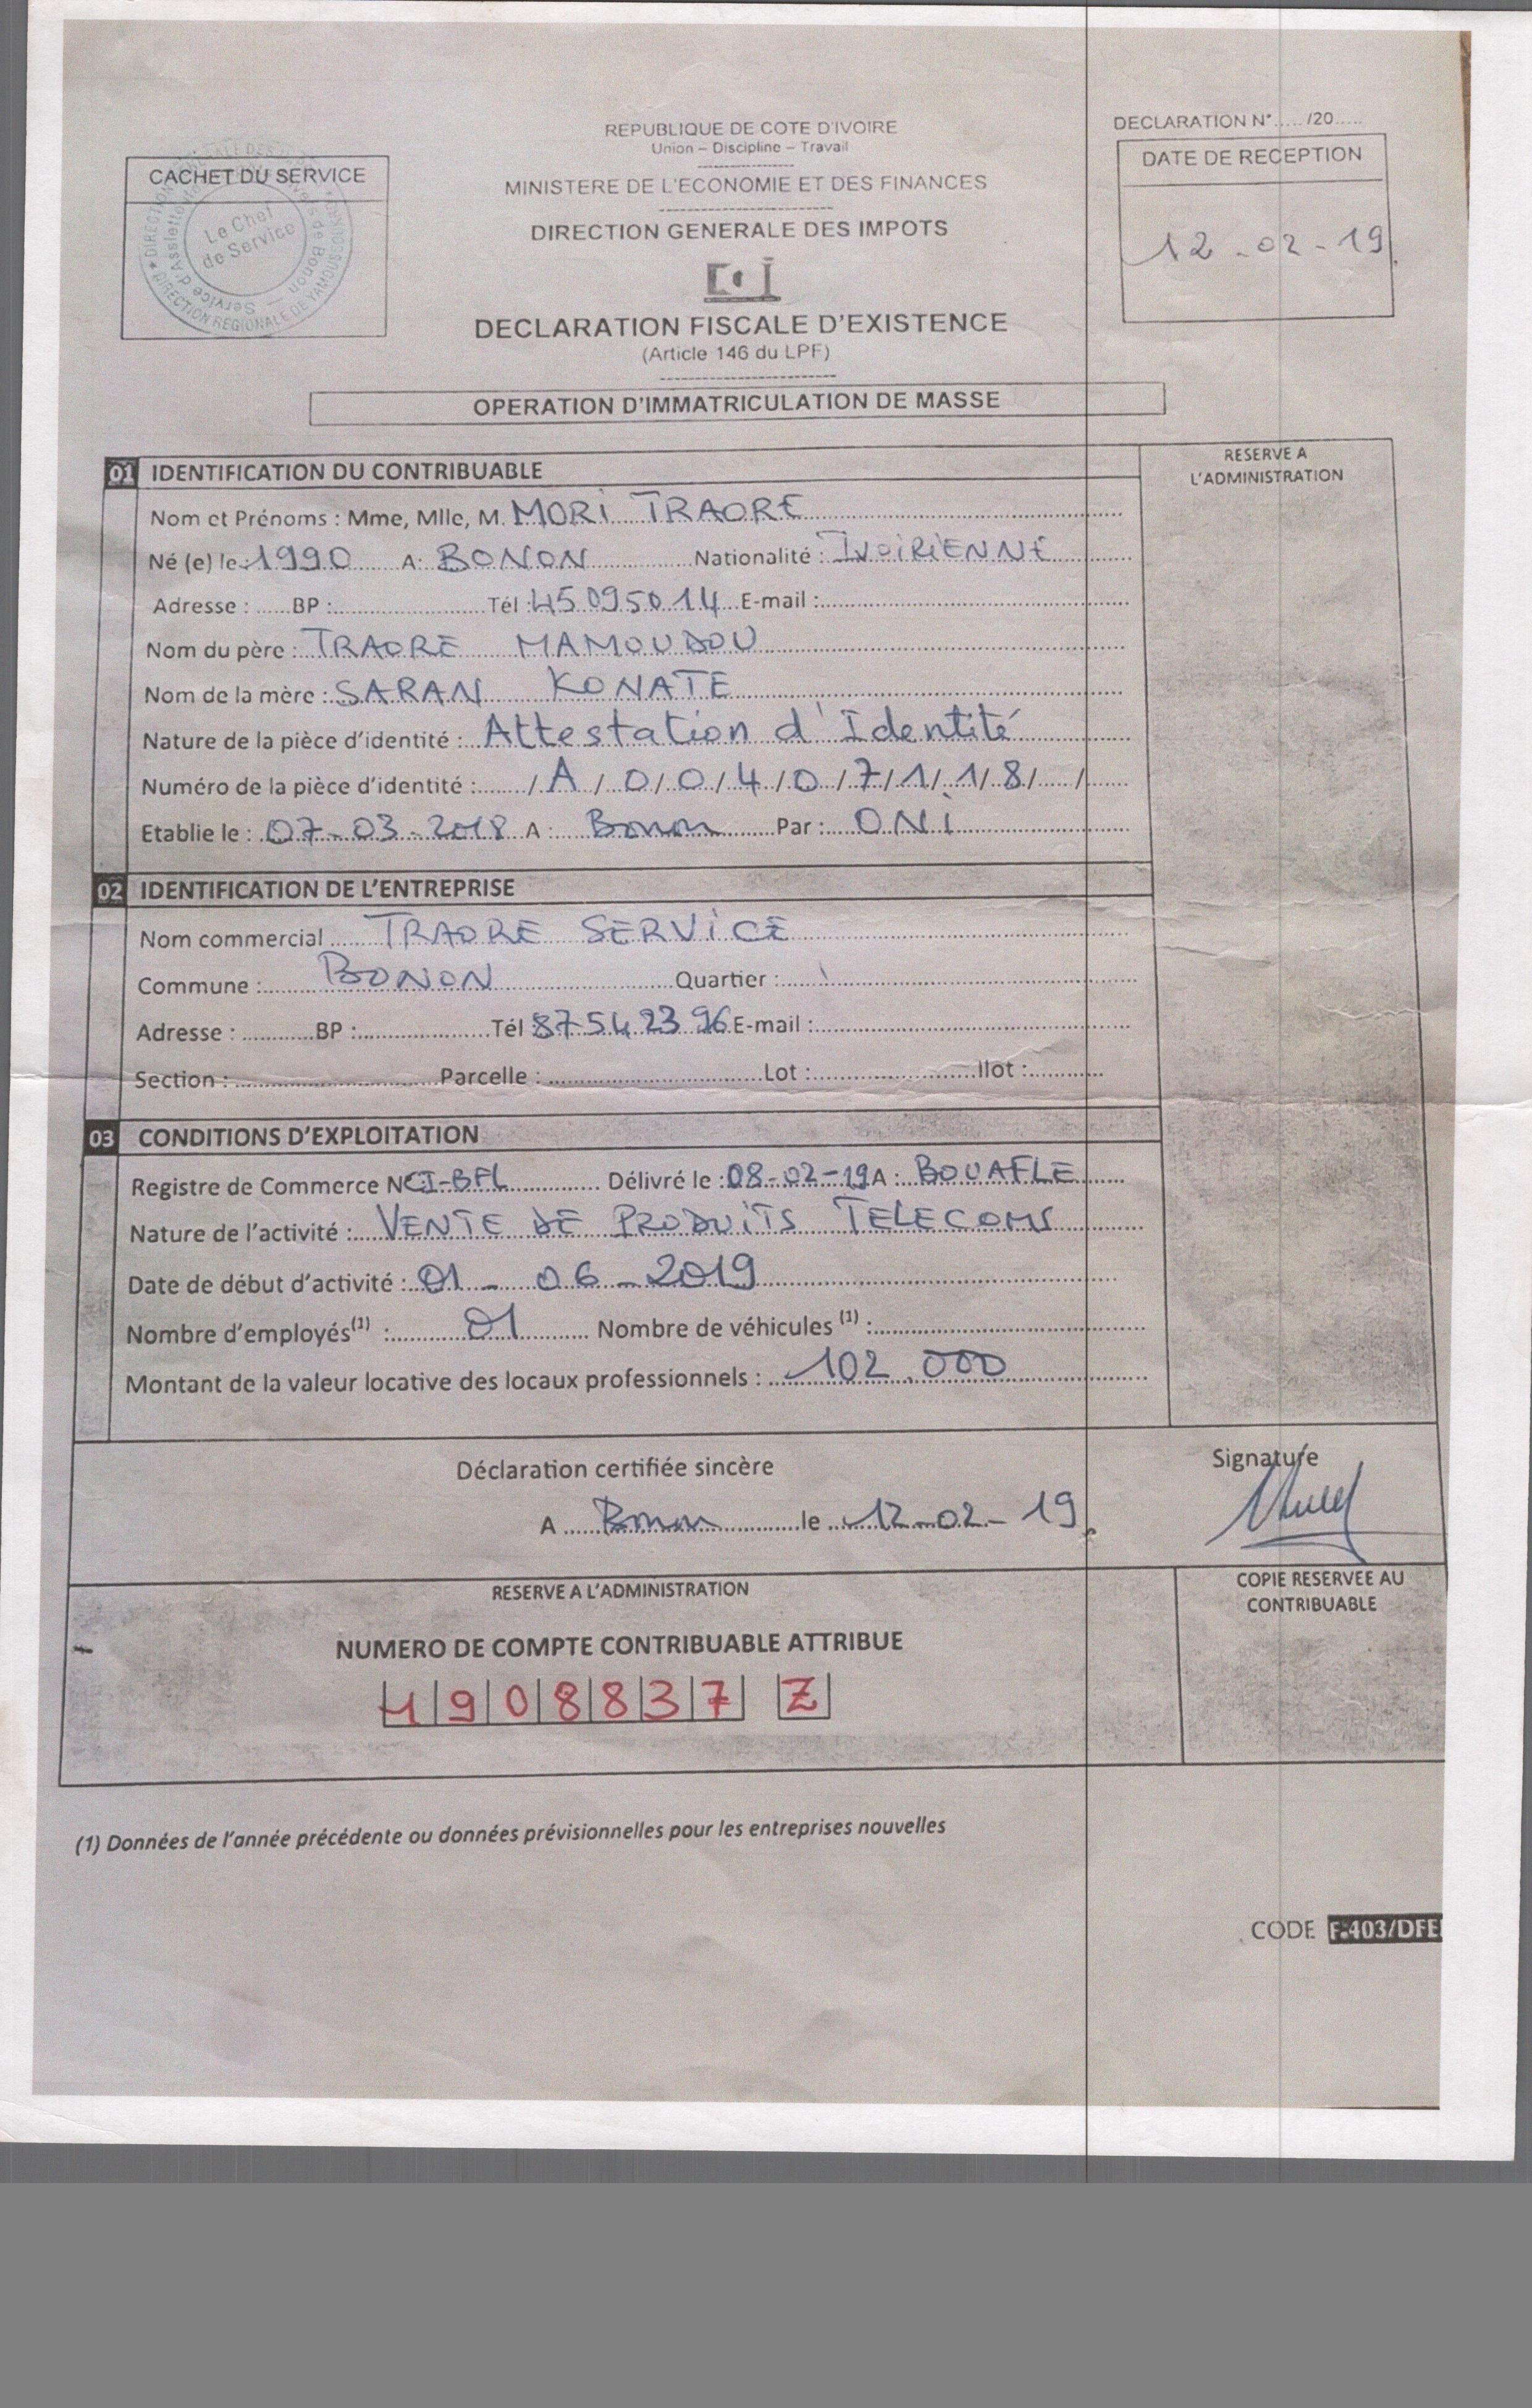 DECLARATION N°...... /20......
REPUBLIQUE DE COTE D'IVOIRE
Union – Discipline – Travail
CACHET DU SERVICE
DATE DE RECEPTION
MINISTERE DE L'ECONOMIE ET DES FINANCES
Le Chef
de Service
Service d'Assiette
de Bonon
DIRECTION REGIONALE DE YAMOUSSOUKRO
DIRECTION GENERALE DES IMPOTS
12-02-19
DECLARATION FISCALE D'EXISTENCE
(Article 146 du LPF)
OPERATION D'IMMATRICULATION DE MASSE
01 IDENTIFICATION DU CONTRIBUABLE
RESERVE A
L'ADMINISTRATION
Nom et Prénoms : Mme, Mlle, M. MORI TRAORE
Né (e) le : 1990 A: BONON Nationalité : IVOIRIENNE
Adresse : ......BP :........................Tél : 45095014 E-mail :........................
Nom du père : TRAORE MAMOUDOU
Nom de la mère : SARAN KONATE
Nature de la pièce d'identité : Attestation d'Identité
Numéro de la pièce d'identité : ....../A/0/0/4/0/7/1/1/8/....../......
Etablie le : 07-03-2018 A : Bonon Par : ONI
02 IDENTIFICATION DE L'ENTREPRISE
Nom commercial TRAORE SERVICE
Commune : BONON Quartier :........................
Adresse : ............BP :........................Tél : 87542396 E-mail :........................
Section : ........................Parcelle : ........................Lot :........................Ilot :............
03 CONDITIONS D'EXPLOITATION
Registre de Commerce N° CI-BFL Délivré le : 08-02-19 A : BOUAFLE
Nature de l'activité : VENTE DE PRODUITS TELECOMS
Date de début d'activité : 01-06-2019
Nombre d'employés(1) : 01 Nombre de véhicules (1) :........................
Montant de la valeur locative des locaux professionnels : 102.000
Déclaration certifiée sincère
Signature
A Bonon le 12-02-19
RESERVE A L'ADMINISTRATION
COPIE RESERVEE AU
CONTRIBUABLE
NUMERO DE COMPTE CONTRIBUABLE ATTRIBUE
1908837 Z
(1) Données de l'année précédente ou données prévisionnelles pour les entreprises nouvelles
CODE F-403/DFE